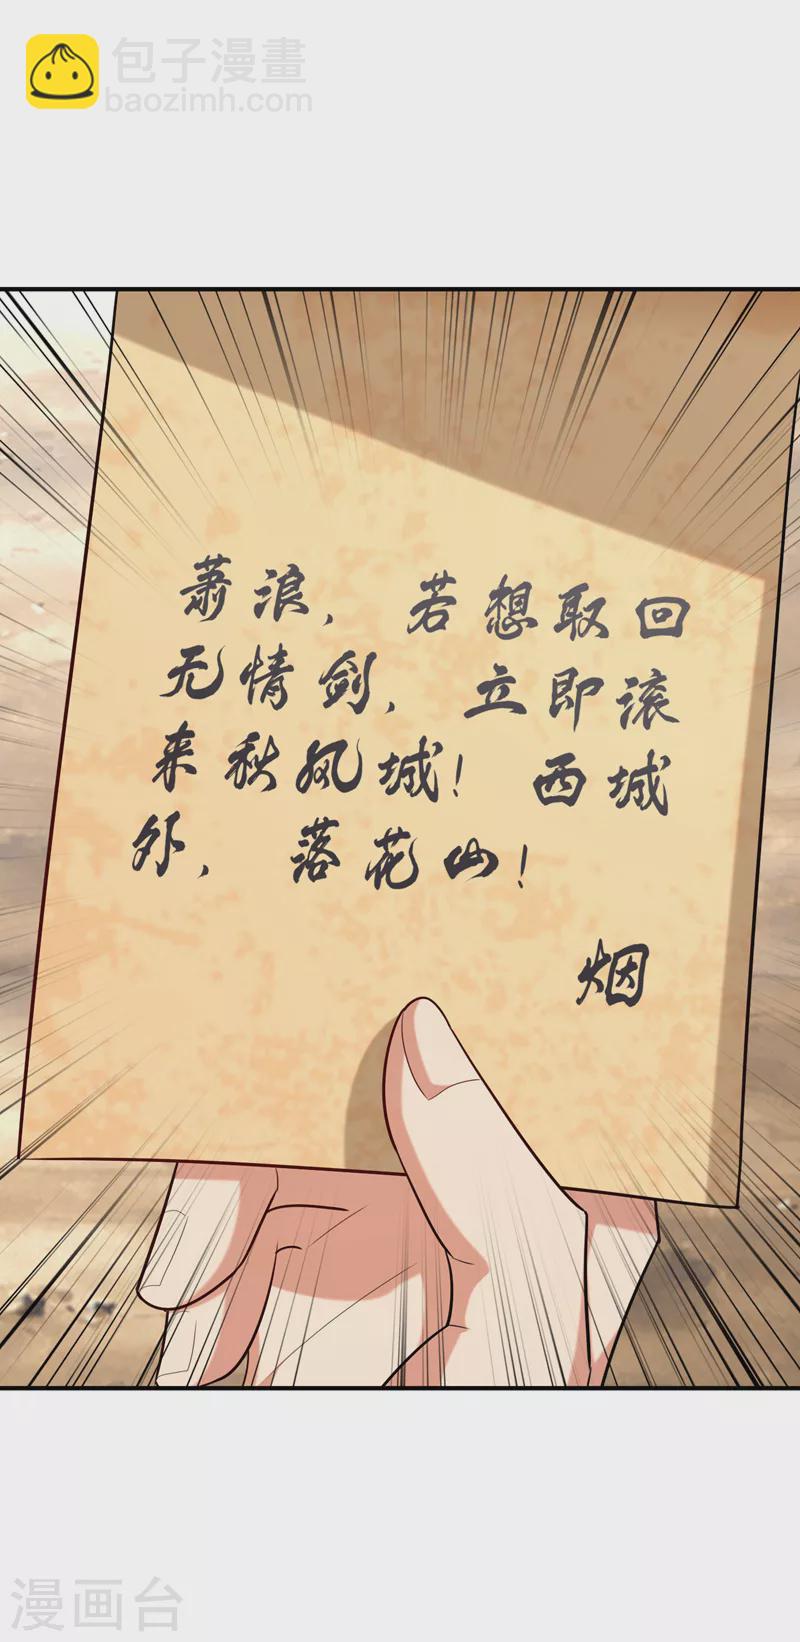 包子漫畫
baozimh.com
萧浪，若想取回
无情剑，立即滚
来秋风城！西城
外，落花山！
烟
漫画台